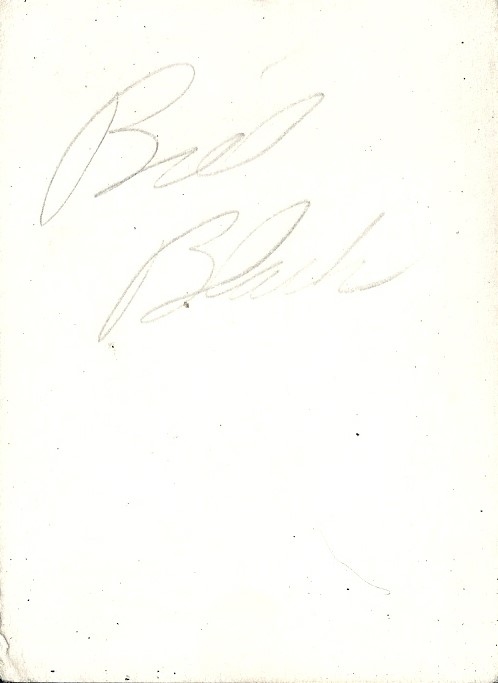 Bill
Black